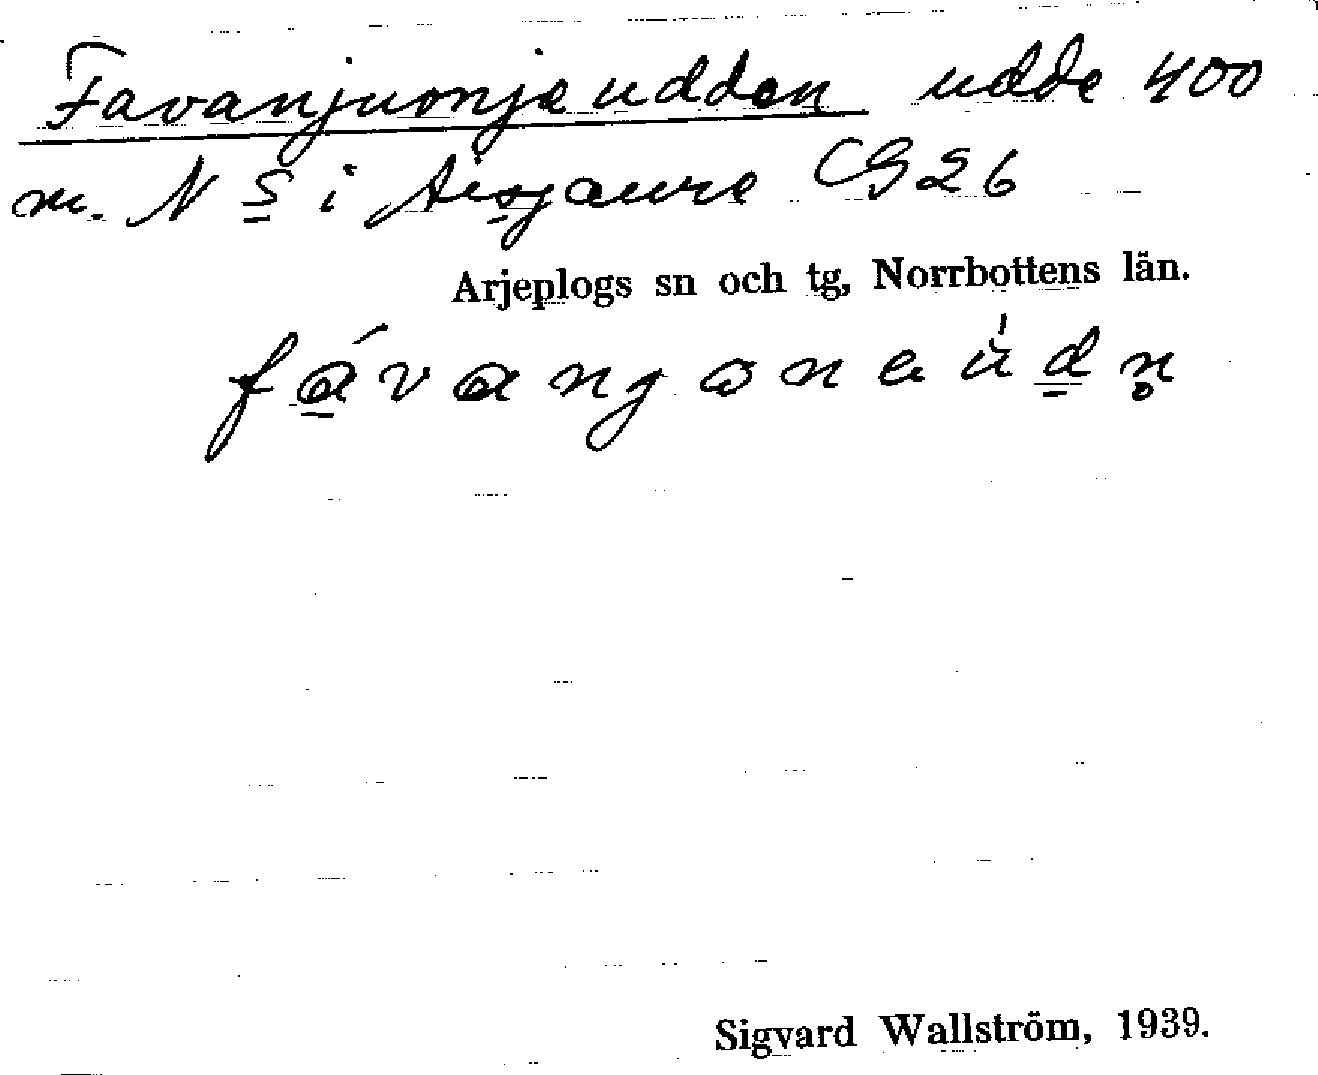 Favanjuonjeudden udde 400
m. N S i Aisjaure CG26
Arjeplogs sn och tg, Norrbottens län.
Sigvard Wallström, 1939.